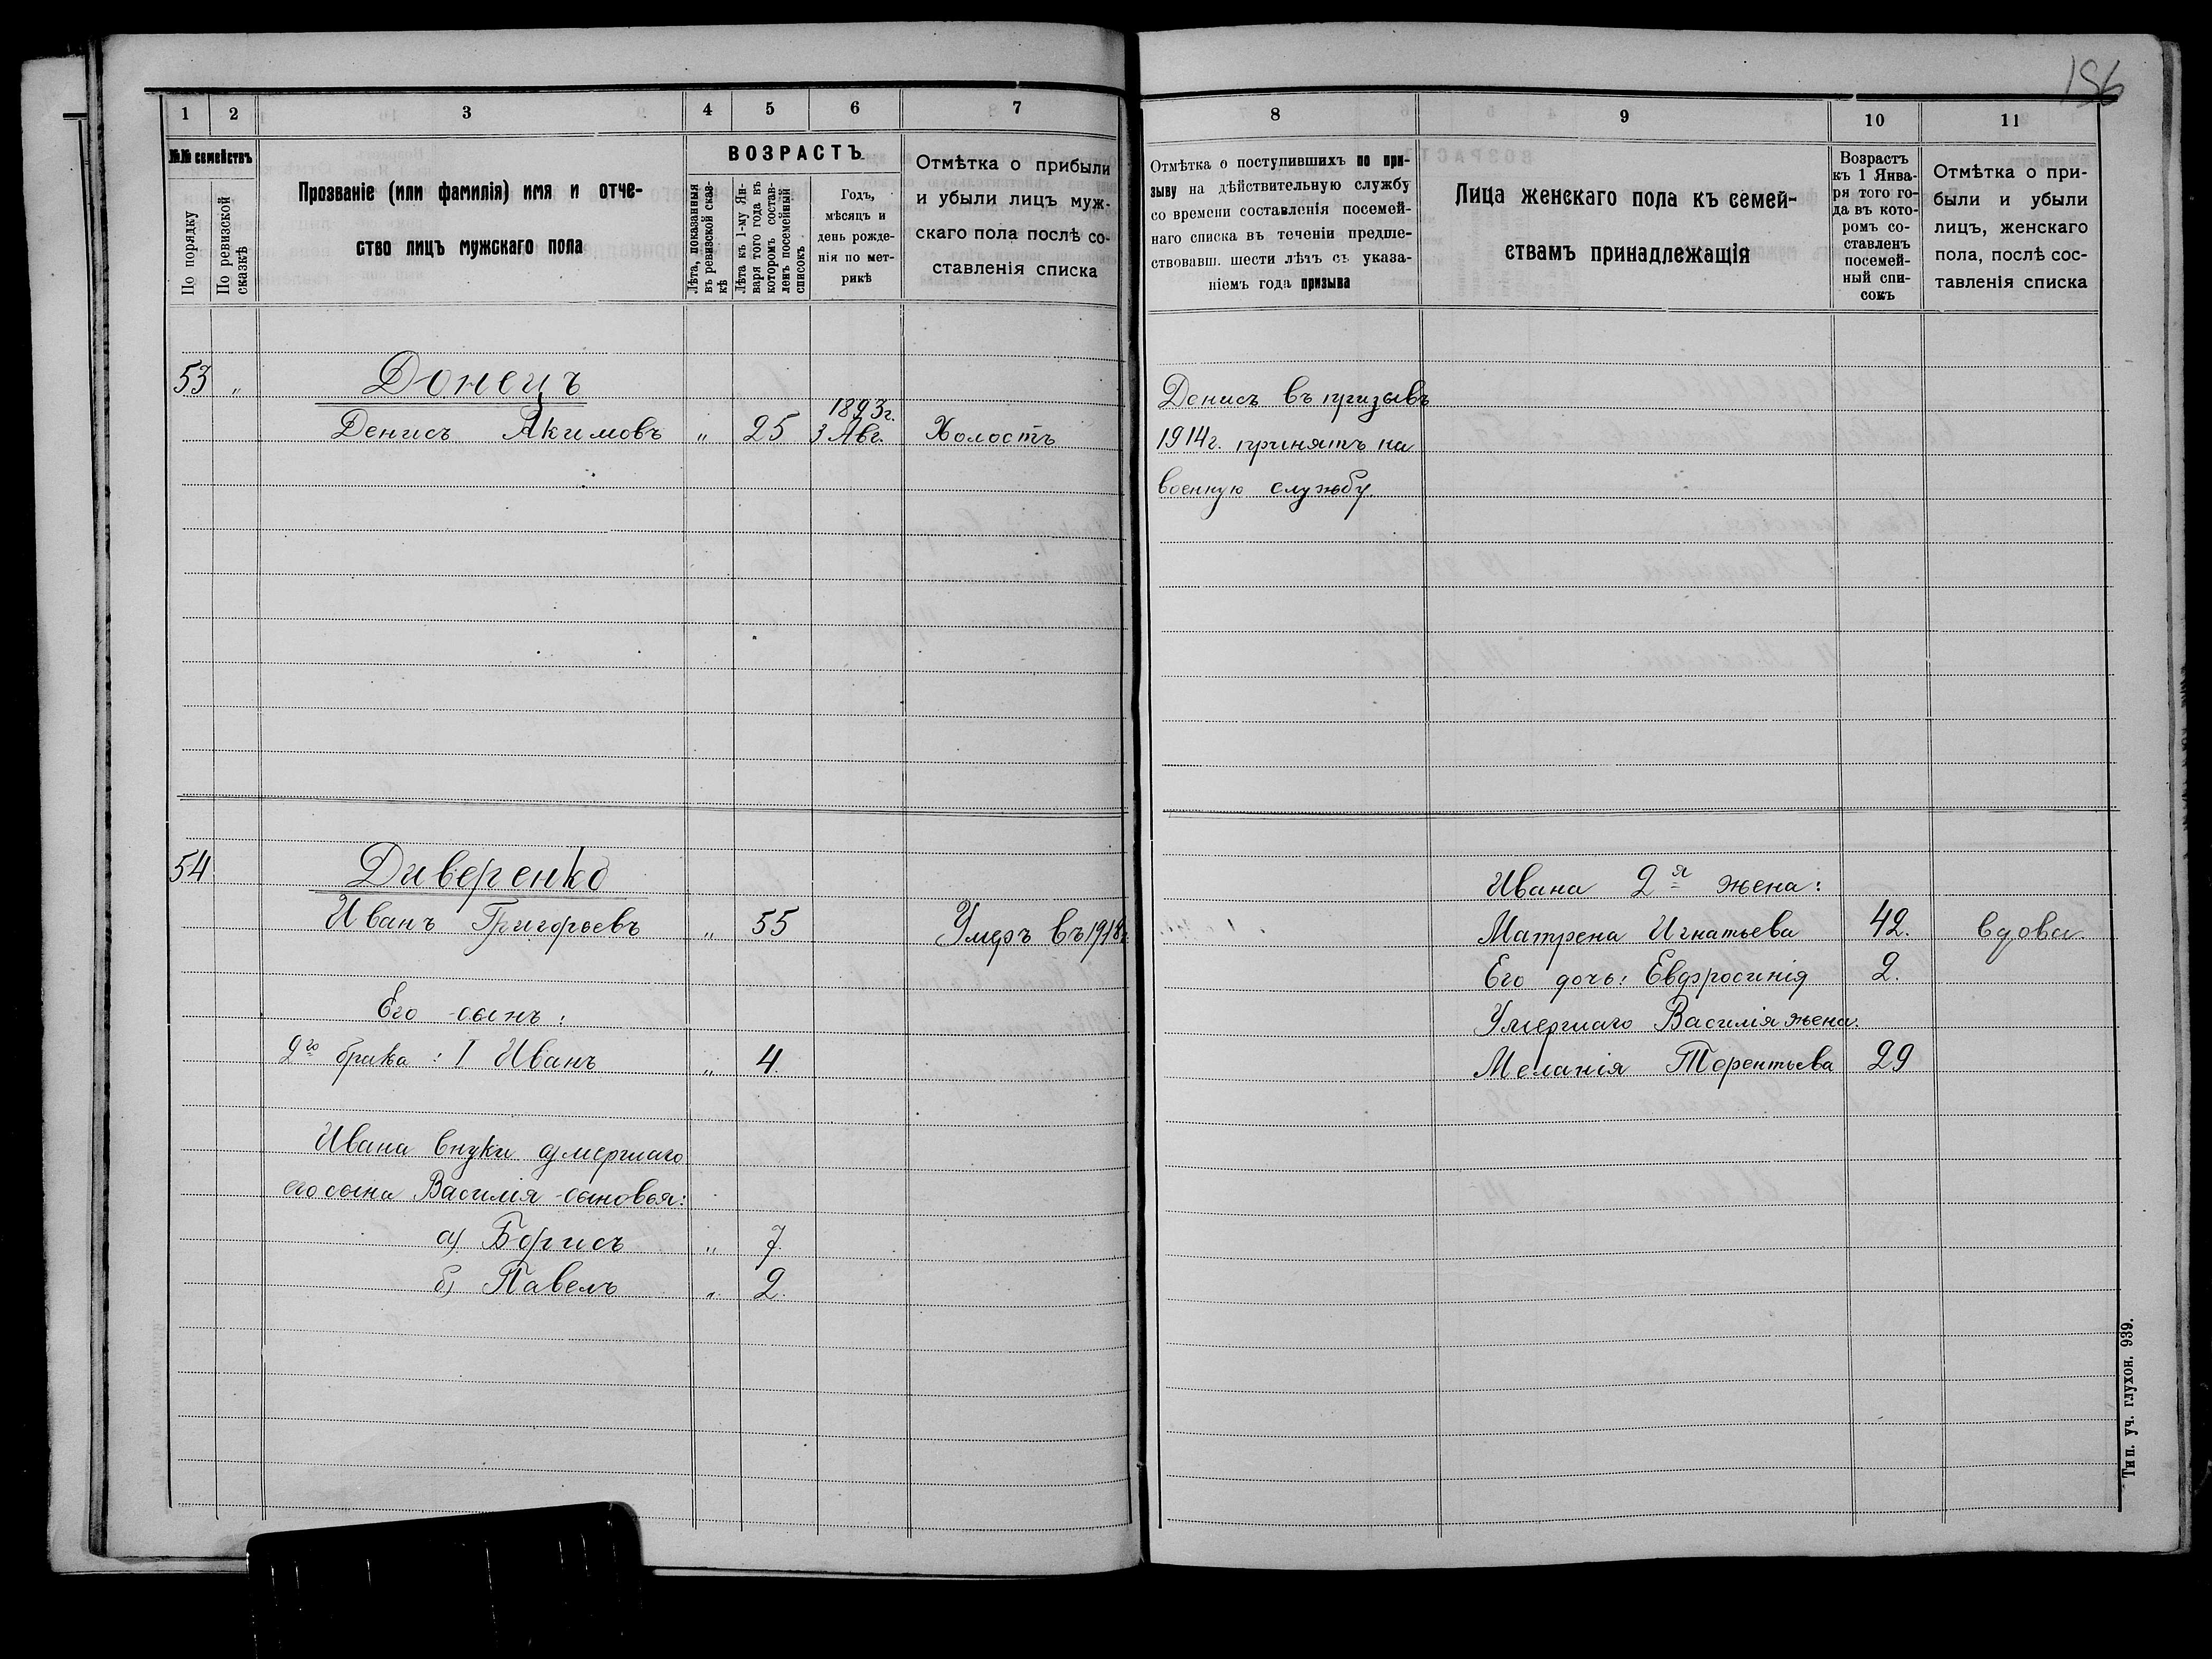 156
1 2 3 4 5 6 7
№№ семействъ
По порядку
По ревизской сказкѣ
Прозваніе (или фамилія) имя и отче-
ство лицъ мужскаго пола
ВОЗРАСТЪ
Лѣта, показанныя въ ревизской сказ-кѣ
Лѣта къ 1-му Ян-варя того года въ которомъ состав-ленъ посемейный списокъ
Годъ,
мѣсяцъ и
день рожде-
нія по мет-
рикѣ
Отмѣтка о прибыли
и убыли лицъ муж-
скаго пола послѣ со-
ставленія списка
53 " Донецъ
1893г.
Денисъ Акимовъ " 25 3 Авг. Холостъ
54 Диверенко
Иванъ Григорьевъ " 55 Умеръ въ 1918г.
Его сынъ:
2го брака: I Иванъ " 4.
Ивана внуки умершаго
его сына Василія сыновья:
а) Борисъ " 7.
б) Павелъ " 2.
8 9 10 11
Отмѣтка о поступившихъ по при-
зыву на дѣйствительную службу
со времени составленія посемей-
наго списка въ теченіи предше-
ствовавш. шести лѣтъ съ указа-
ніемъ года призыва
Лица женскаго пола къ семей-
ствамъ принадлежащія
Возрастъ
къ 1 Янва-
ря того го-
да въ кото-
ромъ со-
ставленъ
посемей-
ный спи-
сокъ
Отмѣтка о при-
были и убыли
лицъ, женскаго
пола, послѣ сос-
тавленія списка
Денисъ въ призывъ
1914г. принятъ на
военную службу.
Ивана 2я жена:
Матрена Игнатьева 42. вдова.
Его дочь: Евфросинія 2.
Умершаго Василія жена:
Меланія Терентьева 29
Тип. уч. глухон. 939.